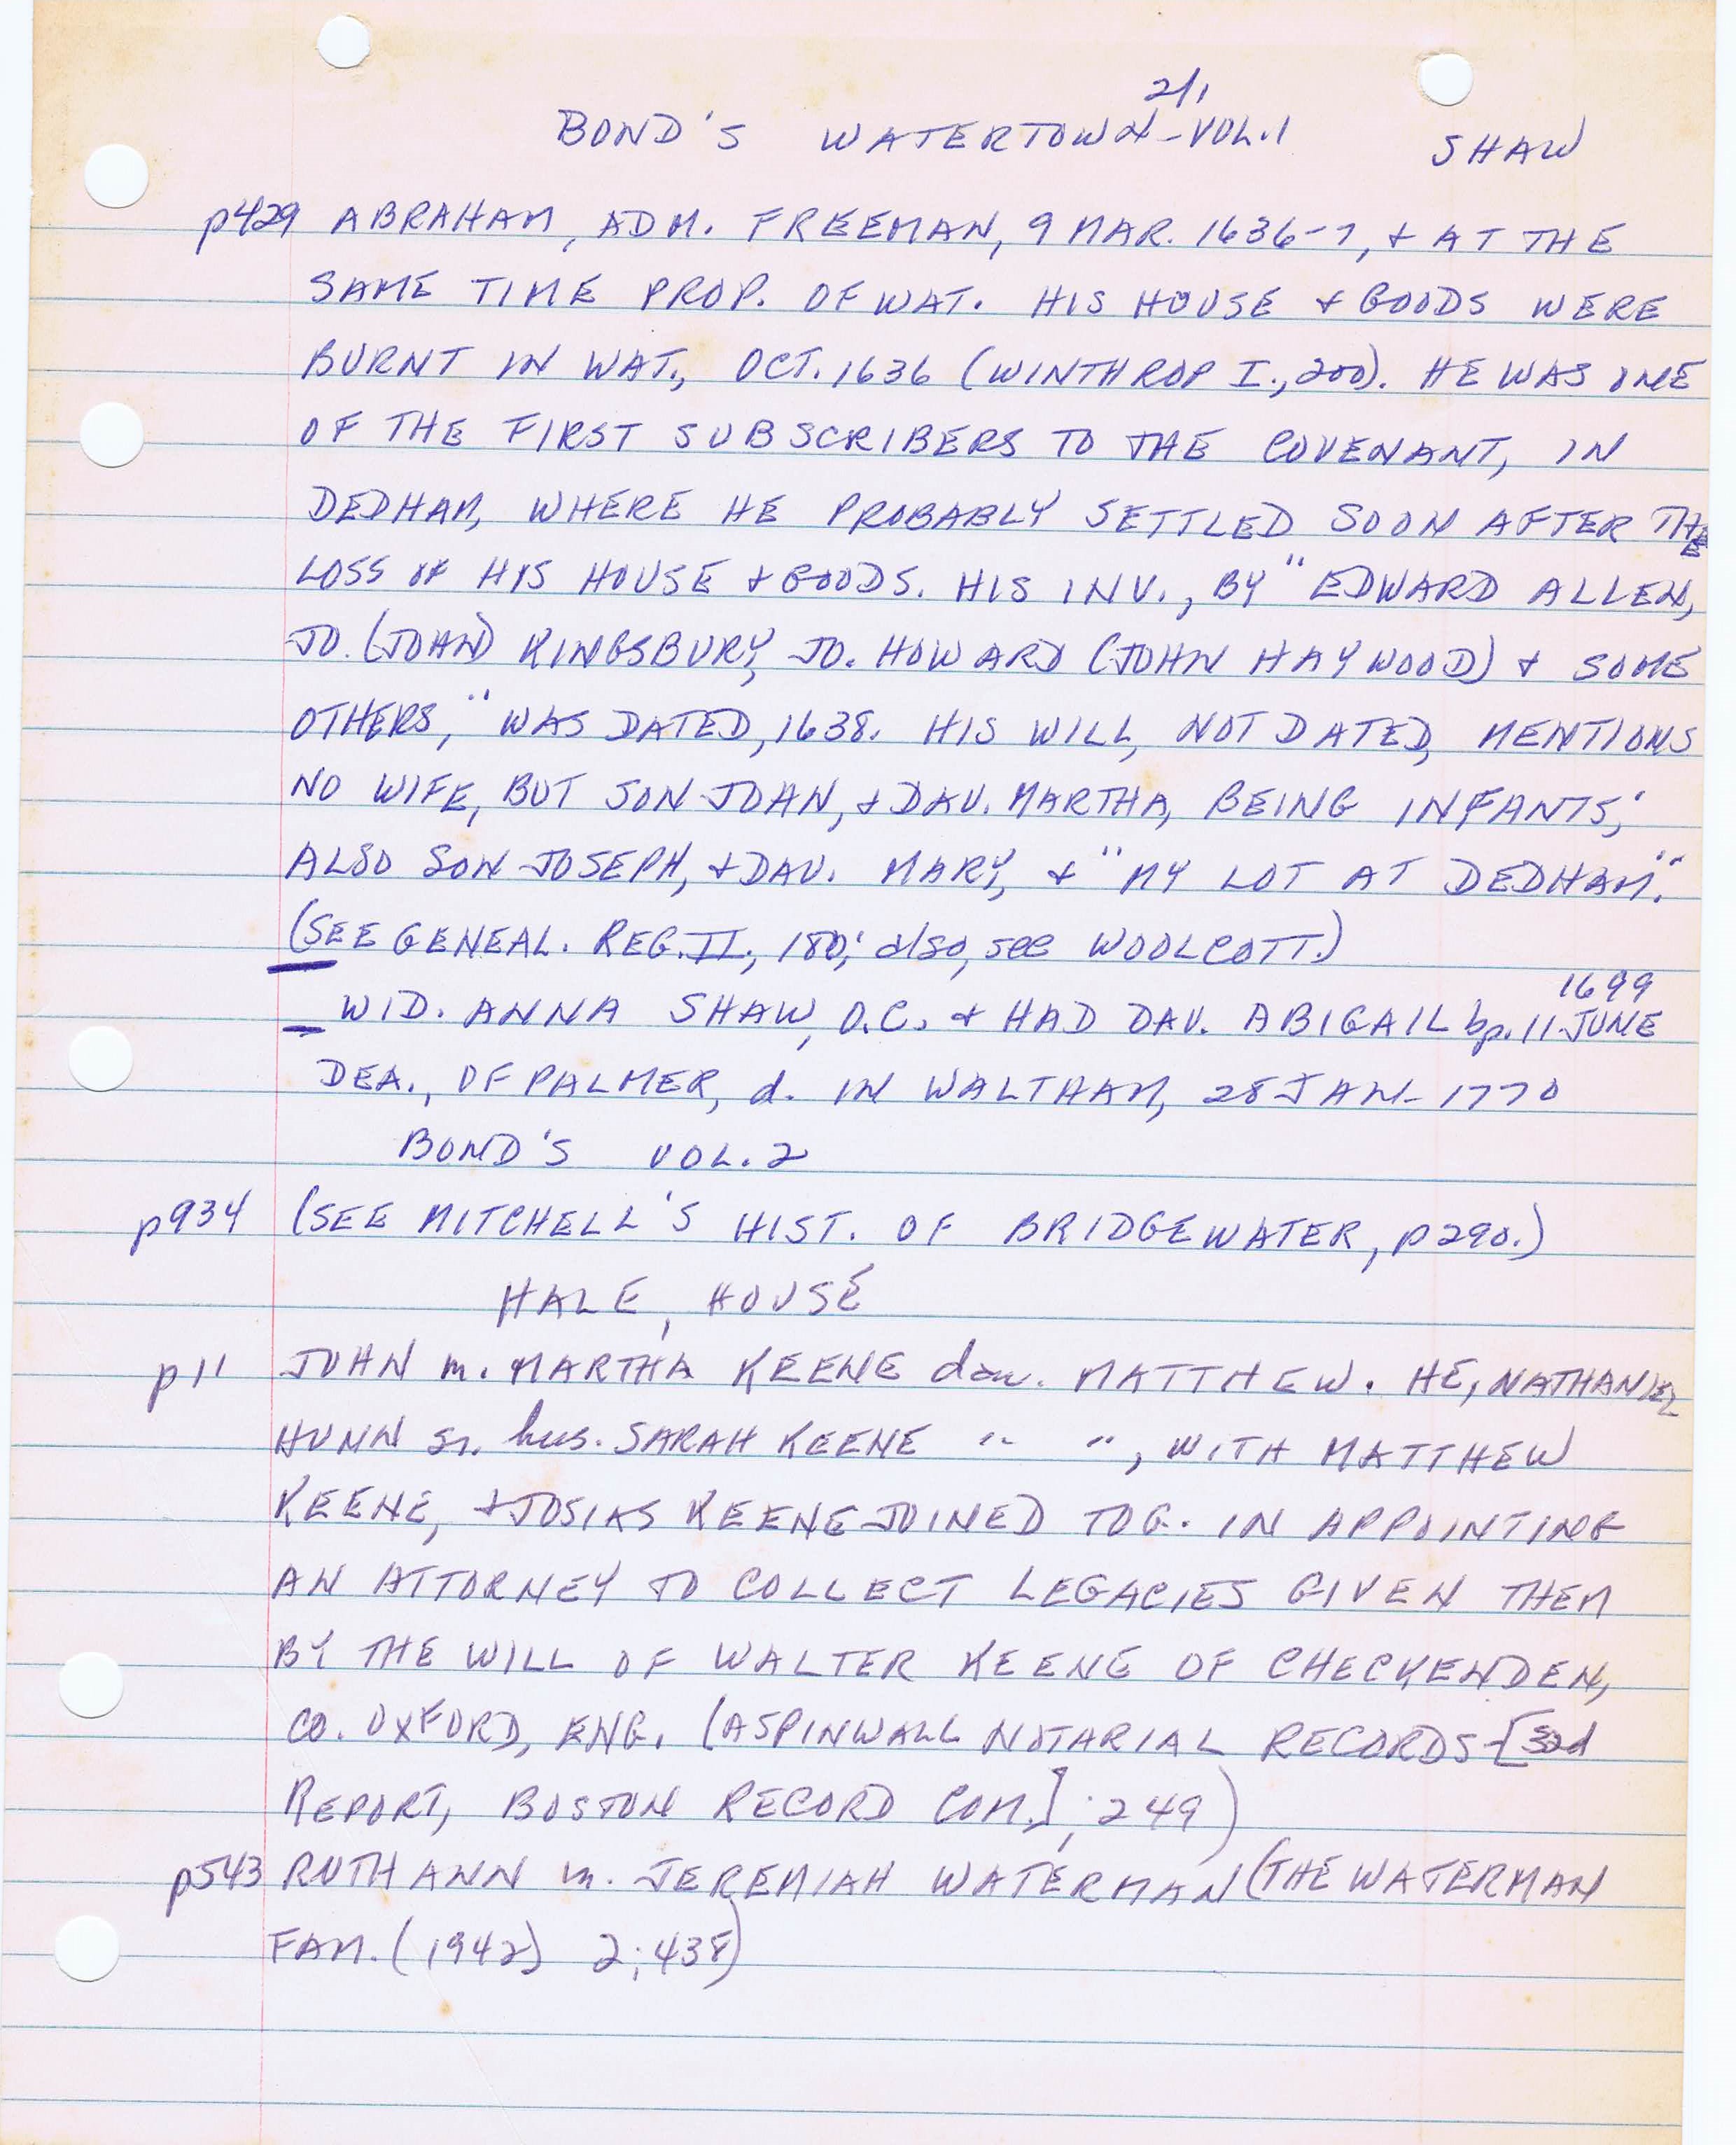 2/1
BOND'S WATERTOWN-VOL.1 SHAW
p429 ABRAHAM, ADM. FREEMAN, 9 MAR. 1636-7, & AT THE
SAME TIME PROP. OF WAT. HIS HOUSE & GOODS WERE
BURNT IN WAT., OCT. 1636 (WINTHROP I., 200). HE WAS ONE
OF THE FIRST SUBSCRIBERS TO THE COVENANT, IN
DEDHAM, WHERE HE PROBABLY SETTLED SOON AFTER THE
LOSS OF HIS HOUSE & GOODS. HIS INV., BY "EDWARD ALLEN,
JO. (JOHN) KINGSBURY, JO. HOWARD (JOHN HAYWOOD) & SOME
OTHERS," WAS DATED, 1638. HIS WILL, NOT DATED, MENTIONS
NO WIFE, BUT SON JOHN, & DAU. MARTHA, BEING INFANTS;
ALSO SON JOSEPH, & DAU. MARY, & "MY LOT AT DEDHAM."
(SEE GENEAL. REG. II., 180; also, see WOOLCOTT.)
1699
WID. ANNA SHAW, O.C. & HAD DAU. ABIGAIL bp. 11 JUNE
DEA., OF PALMER, d. IN WALTHAM, 28 JAN. 1770
BOND'S VOL. 2
p934 (SEE MITCHELL'S HIST. OF BRIDGEWATER, p290.)
HALE, HOUSE
p11 JOHN m. MARTHA KEENE dau. MATTHEW. HE, NATHANIEL
HUNN sr. hus. SARAH KEENE " ", WITH MATTHEW
KEENE, & JOSIAS KEENE JOINED TOG. IN APPOINTING
AN ATTORNEY TO COLLECT LEGACIES GIVEN THEM
BY THE WILL OF WALTER KEENE OF CHECKENDEN,
CO. OXFORD, ENG. (ASPINWALL NOTARIAL RECORDS-[32d
REPORT, BOSTON RECORD COM.]; 249)
p543 RUTH ANN m. JEREMIAH WATERMAN (THE WATERMAN
FAM. (1942) 2:438)